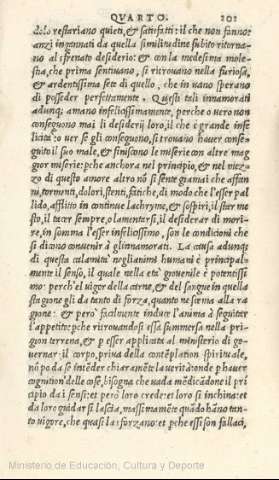 QVARTO. 201
dolo restariano quieti, & satisfatti: il che non fanno:
anzi ingannati da quella similitudine subito ritorna-
no al sfrenato desiderio: & con la medesima mole-
stia, che prima sentiuano, si ritrouano nella furiosa,
& ardentissima sete di quello, che in uano sperano
di posseder perfettamente. Questi tali innamorati
adunq; amano infelicissimamente, perche o uero non
conseguono mai li desiderij loro, il che è grande infe
licità: o uer se gli conseguono, si trouano hauer conse-
guito il suo male, & finiscono le miserie con altre mag
gior miserie: pche anchora nel principio, & nel mez-
zo di questo amore altro nõ si sente giamai che affan
ni, tormenti, dolori, stenti, fatiche, di modo che l'esser pal
lido, afflitto in continue lachryme, & sospiri, il star me
sto, il tacer sempre, o lamentarsi, il desiderar di mori-
re, in somma l'esser infelicissimo, son le condicioni che
si dicono conuenir à gl'innamorati. La causa adunq;
di questa calamità negli animi humani è principal-
mente il senso, il quale nella età giouenile è potentissi
mo: perch'el uigor della carne, & del sangue in quella
stagione gli da tanto di forza, quanto ne scema alla ra
gione: & però facilmente induce l'anima à seguitar
l'appetito: pche ritrouandosi essa summersa nella pri-
gion terrena, & p esser applicata al ministerio di go-
uernar il corpo, priua della contẽplation spirituale,
nõ po da se intẽder chiaramẽte la uerità: onde p hauer
cognition delle cose, bisogna che uada mẽdicãdone il prĩ
cipio da i sensi: et però loro crede: et loro si inchina: et
da loro guidar si lascia, massimamẽte quãdo hãno tan-
to uigore, che quasi la sforzano: et pche essi son fallaci,
Ministerio de Educación, Cultura y Deporte